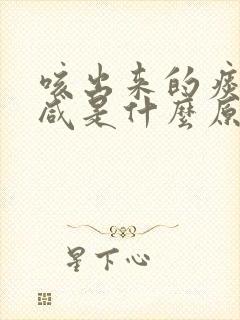 咳出来的痰
咸是什麼原
星下心